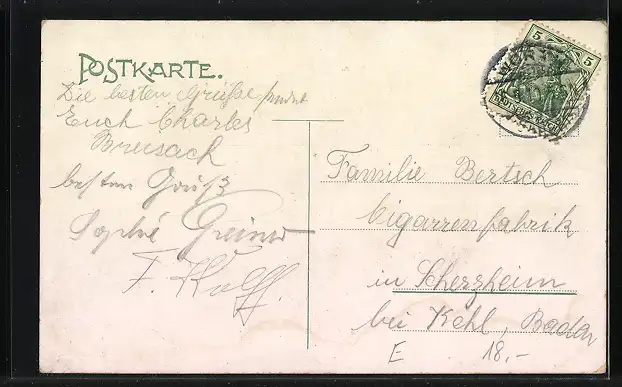 POSTKARTE.
Die besten Grüße sendet
Euch Charles
Breisach
besten Gruß
Sophie Greiner
F. Wolff.
5 5
DEUTSCHES REICH
Familie Bertsch
Cigarrenfabrik
in Scherzheim
bei Kehl, Baden
E 18.-